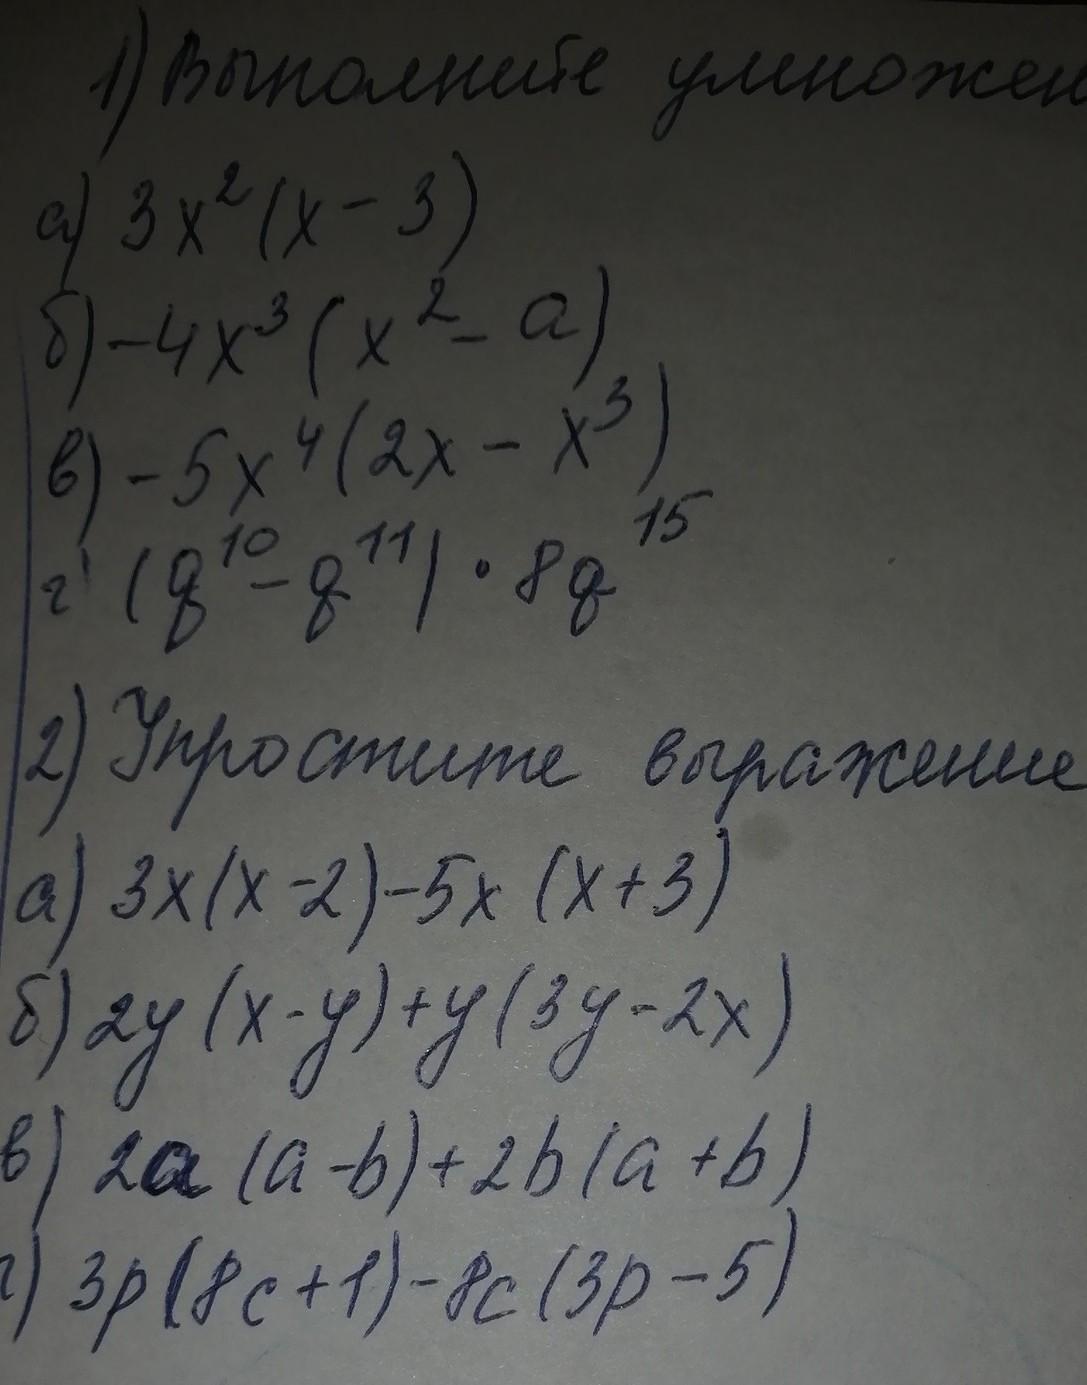 1) Выполните умножен
а) 3x²(x - 3)
б) -4x³(x² - a)
в) -5x⁴(2x - x³)
г) (q¹⁰ - q¹¹) · 8q¹⁵
2) Упростите выражение
а) 3x(x - 2) - 5x(x + 3)
б) 2y(x - y) + y(3y - 2x)
в) 2a(a - b) + 2b(a + b)
г) 3p(8c + 1) - 8c(3p - 5)